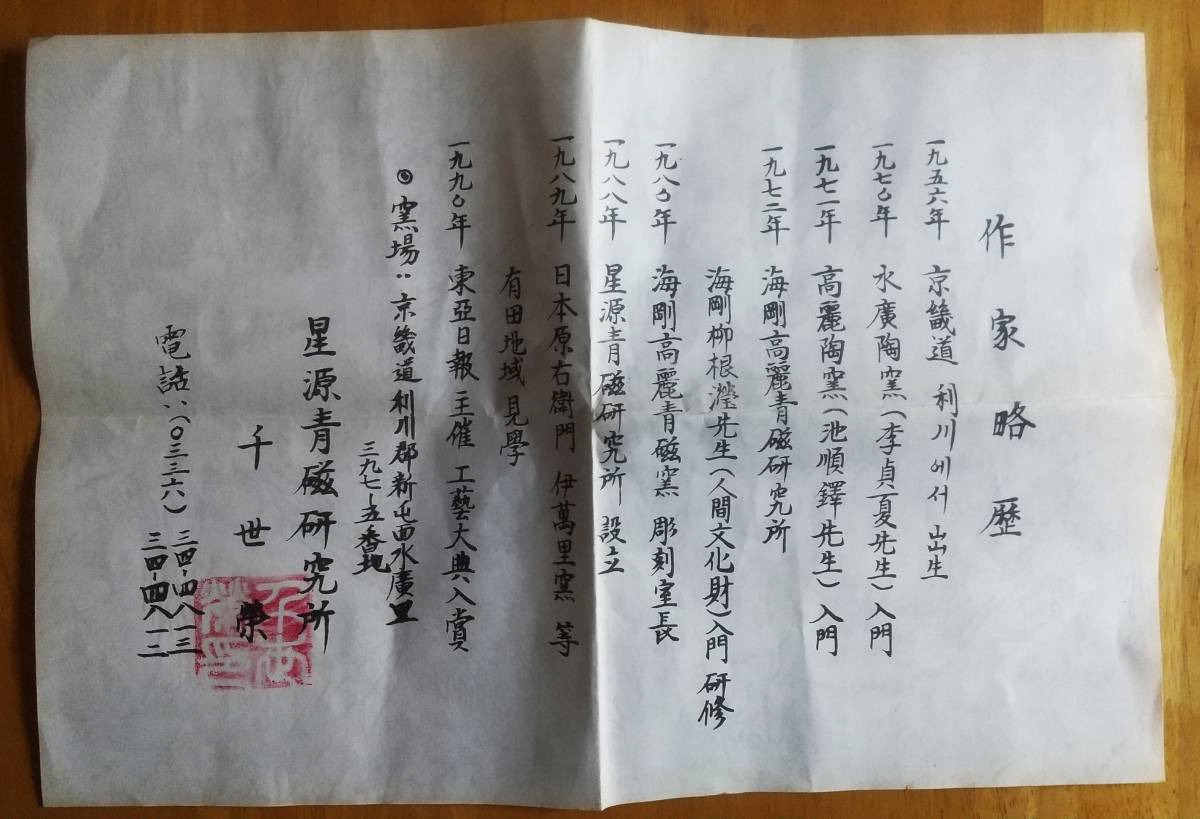 作家略歷
一九五六年 京畿道 利川에서 出生
一九七〇年 水廣陶窯(李貞夏先生)入門
一九七一年 高麗陶窯(池順鐸先生)入門
一九七二年 海剛高麗青磁研究所
海剛柳根瀅先生(人間文化財)入門 研修
一九八〇年 海剛高麗青磁窯 彫刻室長
一九八八年 星源青磁研究所 設立
一九八九年 日本原右衛門 伊萬里窯 等
有田地域 見學
一九九〇年 東亞日報 主催 工藝大典入賞
◎窯場:京畿道利川郡新屯面水廣里
三九七-五番地
星源青磁研究所
千世榮
電話:(〇三三六)三四-四八一三
三四-四八一二
千世榮印